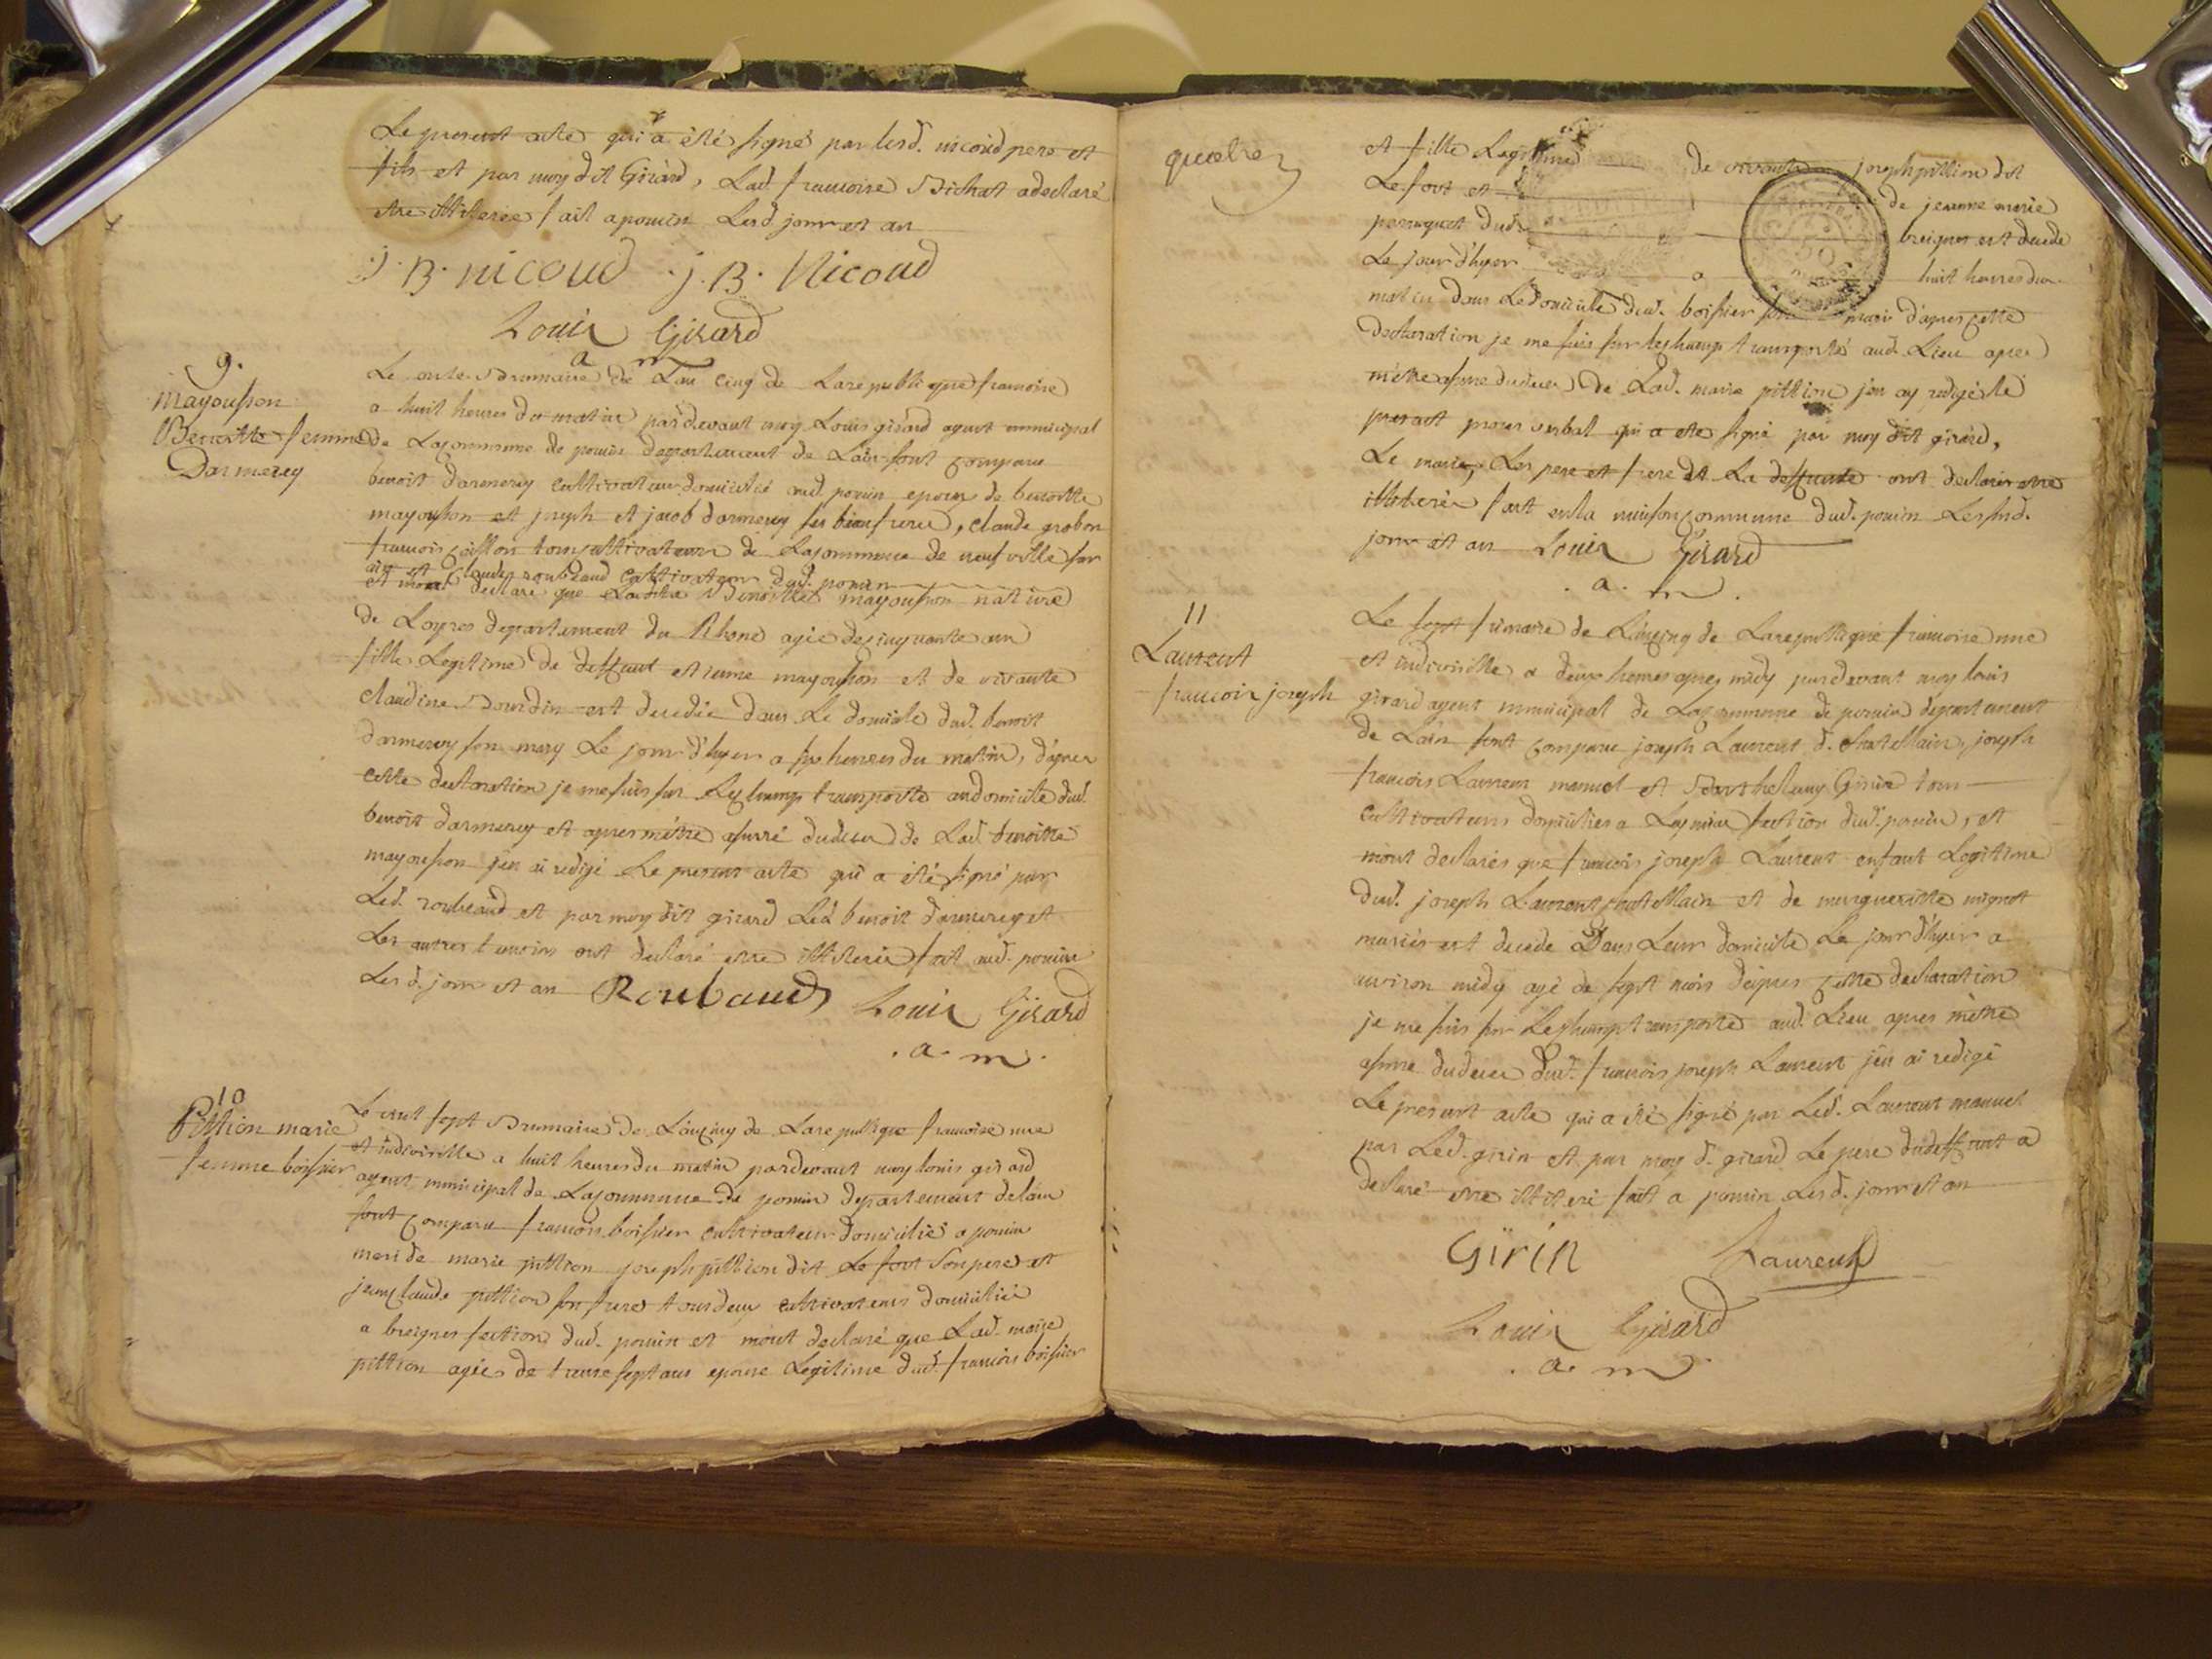 Le present acte qui a été signé par lesd. nicoud pere et
fils et par moy dit Girard, Lad. francoise Bichat a declaré
etre illiterée fait a poncin Lesd. jour et an
J. B. nicoud J. B. Nicoud
Louis Girard
a m
9.
Mayousson
Benoitte femme
Darmerey
Le onze Brumaire de L'an cinq de La republique francoise
a huit heures du matin pardevant moy Louis girard agent municipal
de La commune de poncin departement de L'ain sont comparu
benoit darmerey cultivateur domicilié aud. poncin epoux de benoitte
mayousson et joseph et jacob darmerey ses beaufreres, claude grobon
francois coillon tous cultivateurs de La commune de neufville sur
ain et claude roubeaud cultivateur dud. poncin
et m'ont declaré que Ladite Benoitte mayousson native
de Loyres departement du Rhone agée de cinquante ans
fille Legitime de deffunt etienne mayousson et de vivante
claudine Bourdin est decedée dans Le domicile dud. benoit
darmerey son mary Le jour d'hyer a six heures du matin, d'apres
cette declaration je me suis sur Le champ transporté au domicile dud.
benoit darmerey et apres m'etre assuré du deces de Lad. benoitte
mayousson j'en ai redigé Le present acte qui a été signé par
Led. roubeaud et par moy dit girard Led. benoit darmerey et
Les autres temoins ont declaré etre illiterés fait aud. poncin
Lesd. jour et an Roubaud Louis Girard
. a. m .
10
Pittion marie
femme boissier
Le vint sept Brumaire de L'an cinq de La republique francoise une
et indivisible a huit heures du matin pardevant moy louis girard
agent municipal de La commune de poncin departement de lain
sont comparu francois boissier cultivateur domicilié a poncin
mari de marie pittion joseph pittion dit Le fort son pere et
jean claude pittion son frere tous deux cultivateurs domiciliés
a breignes section dud. poncin et m'ont declaré que Lad. marie
pittion agée de trente sept ans epouse Legitime dud. francois boissier
quatre
et fille Legitime de vivants joseph pittion dit
Le fort et de jeanne marie
perruquet dud. breignes est decedé
Le jour d'hyer a huit heures du
matin dans Le domicile dud. boissier son mari d'apres cette
declaration je me suis sur le champ transporté aud. Lieu apres
m'etre assuré du deces de Lad. marie pittion j'en ay redigé le
present proces verbal qui a été signé par moy dit girard,
Le marie, Les pere et frere de La deffunte ont declaré etre
illiterés fait en la maison commune dud. poncin Les sud.
jour et an Louis Girard
. a. m .
11
Laurent
francois joseph
Le sept frimaire de L'an cinq de La republique francoise une
et indivisible a deux heures apres midy pardevant moy louis
girard agent municipal de La commune de poncin departement
de L'ain sont comparu joseph Laurent d. chatellain, joseph
francois Laurent manuel et Barthelemy Girin tous
cultivateurs domiciliés a section dud. poncin, et
m'ont declarés que francois joseph Laurent enfant Legitime
dud. joseph Laurent chatellain et de margueritte mignot
mariés est decedé Dans Leur domicile Le jour d'hyer a
environ midy agé de sept mois d'apres cette declaration
je me suis sur Le champ transporté aud. Lieu apres m'etre
assuré du deces dud. francois joseph Laurent j'en ai redigé
Le present acte qui a été signé par Led. Laurent manuel
par Led. girin et par moy d. girard Le pere du deffunt a
declaré etre illiteré fait a poncin Lesd. jour et an
Girin Laurent
Louis Girard
. a. m .